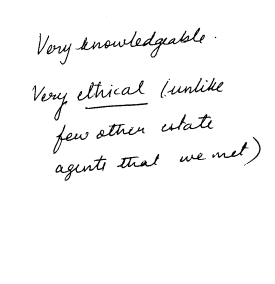 Very knowledgeable.
Very ethical (unlike
few other estate
agents that we met)